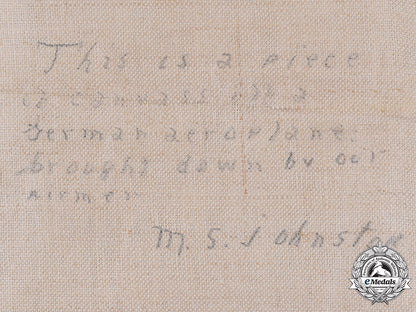 This is a piece
of canvass off a
German aeroplane.
brought down by our
airmen
M. S. Johnston
eMedals